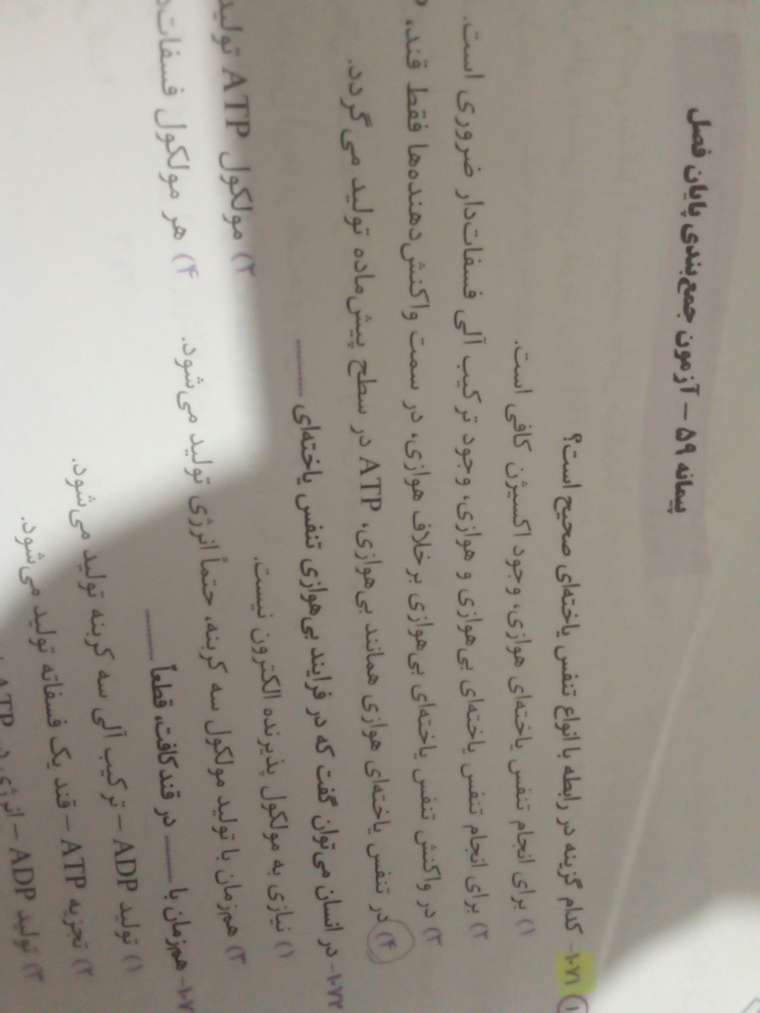 پیمانه ۵۹ – آزمون جمع‌بندی پایان فصل
۱۰۷۱- کدام گزینه در رابطه با انواع تنفس یاخته‌ای صحیح است؟
۱) برای انجام تنفس یاخته‌ای هوازی، وجود اکسیژن کافی است.
۲) برای انجام تنفس یاخته‌ای بی‌هوازی و هوازی، وجود ترکیب آلی فسفات‌دار ضروری است.
۳) در واکنش تنفس یاخته‌ای بی‌هوازی برخلاف هوازی، در سمت واکنش‌دهنده‌ها فقط قند،
۴) در تنفس یاخته‌ای هوازی همانند بی‌هوازی، ATP در سطح پیش‌ماده تولید می‌گردد.
۱۰۷۲- در انسان می‌توان گفت که در فرایند بی‌هوازی تنفس یاخته‌ای ــــــ
۱) نیازی به مولکول پذیرنده الکترون نیست.
۲) مولکول ATP تولید
۳) هم‌زمان با تولید مولکول سه کربنه، حتماً انرژی تولید می‌شود.
۴) هر مولکول فسفات‌
۱۰۷- هم‌زمان با ــــــ در قندکافت، قطعاً ــــــ
۱) تولید ADP – ترکیب آلی سه کربنه تولید می‌شود.
۲) تجزیه ATP – قند یک فسفاته تولید می‌شود.
۳) تولید ADP – انرژی